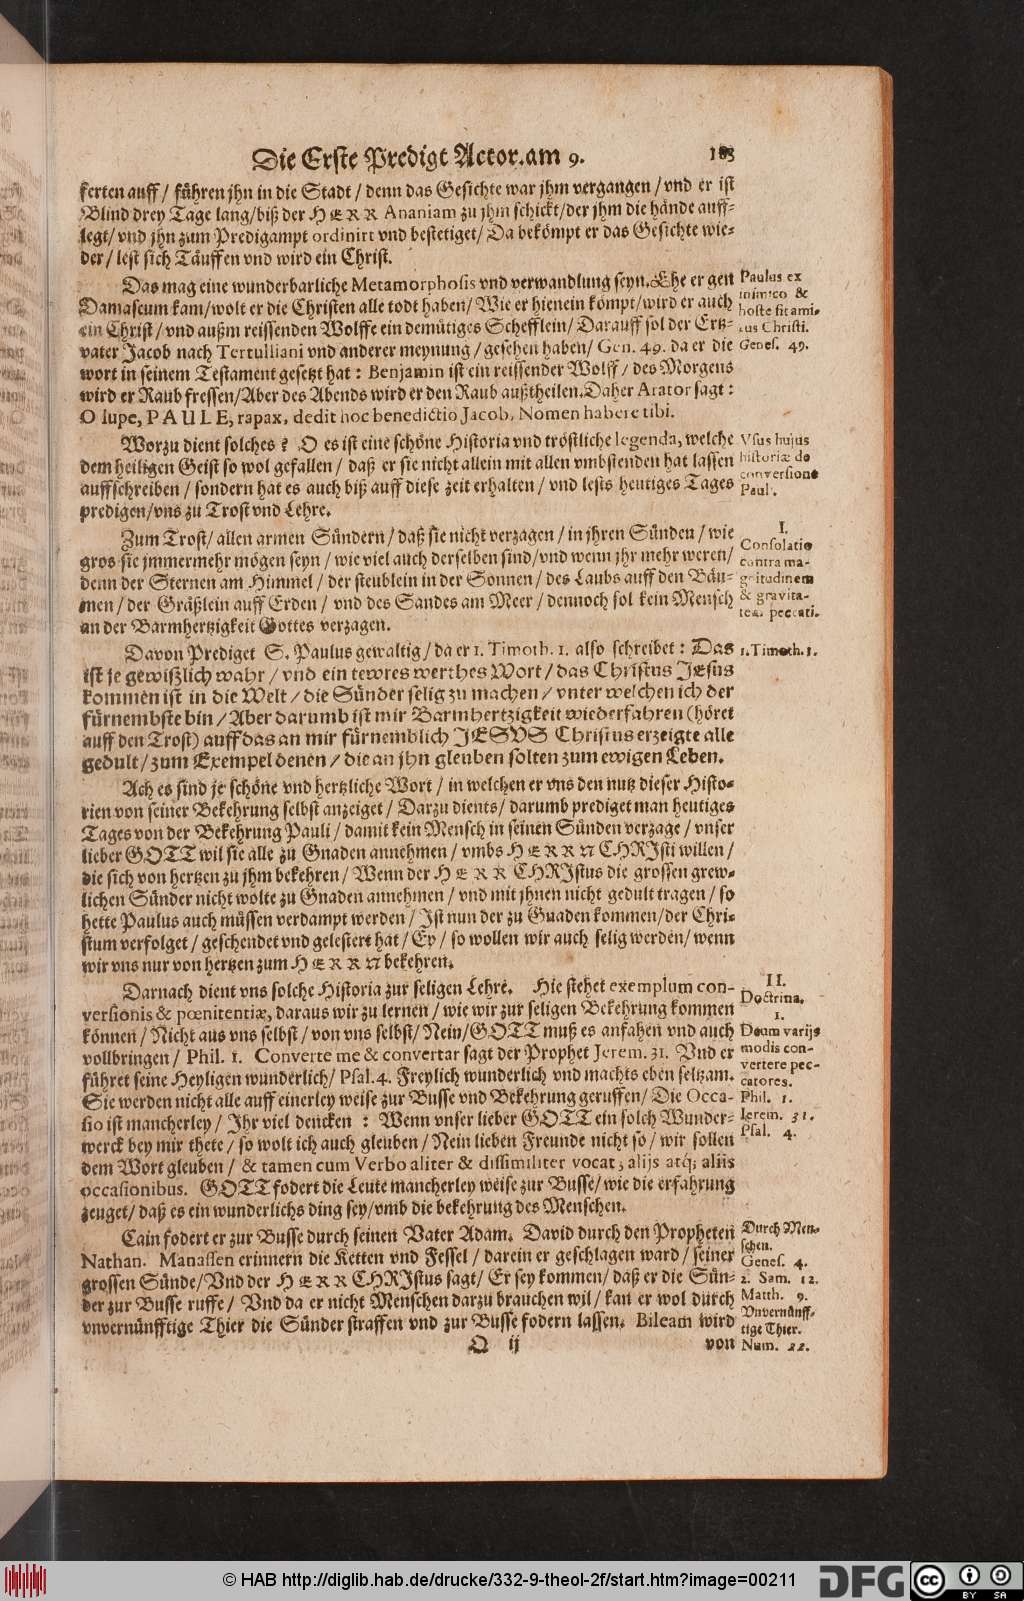 Die Erste Predigt Actor. am 9.
ferten auff / führen jhn in die Stadt / denn das Gesichte war jhm vergangen / vnd er ist
Blind drey Tage lang / biß der HERR Ananiam zu jhm schickt / der jhm die hände auff-
legt / vnd jhn zum Predigampt ordinirt vnd bestetiget / Da bekömpt er das Gesichte wie-
der / lest sich Täuffen vnd wird ein Christ.
Das mag eine wunderbarliche Metamorphosis vnd verwandlung seyn. Ehe er gen
Damascum kam / wolt er die Christen alle todt haben / Wie er hienein kömpt / wird er auch
ein Christ / vnd außm reissenden Wolffe ein demütiges Schefflein / Darauff sol der Ertz-
vater Jacob nach Tertulliani vnd anderer meynung / gesehen haben / Gen. 49. da er die
wort in seinem Testament gesetzt hat : Benjamin ist ein reissender Wolff / des Morgens
wird er Raub fressen / Aber des Abends wird er den Raub außtheilen. Daher Arator sagt :
O lupe, PAULE, rapax, dedit hoc benedictio Jacob, Nomen habere tibi.
Paulus ex
inimico &
hoste fit ami-
cus Christi.
Genes. 49.
Worzu dient solches ? O es ist eine schöne Historia vnd tröstliche legenda, welche
dem heiligen Geist so wol gefallen / daß er sie nicht allein mit allen vmbstenden hat lassen
auffschreiben / sondern hat es auch biß auff diese zeit erhalten / vnd lests heutiges Tages
predigen / vns zu Trost vnd Lehre.
Vsus hujus
historiæ de
conversione
Pauli.
Zum Trost / allen armen Sündern / daß sie nicht verzagen / in jhren Sünden / wie
gros sie jmmermehr mögen seyn / wie viel auch derselben sind / vnd wenn jhr mehr weren /
denn der Sternen am Himmel / der steublein in der Sonnen / des Laubs auff den Bäu-
men / der Gräßlein auff Erden / vnd des Sandes am Meer / dennoch sol kein Mensch
an der Barmhertzigkeit Gottes verzagen.
I.
Consolatio
contra ma-
gnitudinem
& gravita-
tem peccati.
Davon Prediget S. Paulus gewaltig / da er 1. Timoth. 1. also schreibet : Das
ist je gewißlich wahr / vnd ein tewres werthes Wort / das Christus JEsus
kommen ist in die Welt / die Sünder selig zu machen / vnter welchen ich der
fürnembste bin / Aber darumb ist mir Barmhertzigkeit wiederfahren (höret
auff den Trost) auff das an mir fürnemblich JESVS Christus erzeigte alle
gedult / zum Exempel denen / die an jhn gleuben solten zum ewigen Leben.
1. Timoth. 1.
Ach es sind je schöne vnd hertzliche Wort / in welchen er vns den nutz dieser Histo-
rien von seiner Bekehrung selbst anzeiget / Darzu dients / darumb prediget man heutiges
Tages von der Bekehrung Pauli / damit kein Mensch in seinen Sünden verzage / vnser
lieber GOTT wil sie alle zu Gnaden annehmen / vmbs HERRN CHRIsti willen /
die sich von hertzen zu jhm bekehren / Wenn der HERR CHRIstus die grossen grew-
lichen Sünder nicht wolte zu Gnaden annehmen / vnd mit jhnen nicht gedult tragen / so
hette Paulus auch müssen verdampt werden / Ist nun der zu Gnaden kommen / der Chri-
stum verfolget / geschendet vnd gelestert hat / Ey / so wollen wir auch selig werden / wenn
wir vns nur von hertzen zum HERRN bekehren.
Darnach dient vns solche Historia zur seligen Lehre. Hie stehet exemplum con-
versionis & pœnitentiæ, daraus wir zu lernen / wie wir zur seligen Bekehrung kommen
können / Nicht aus vns selbst / von vns selbst / Nein / GOTT muß es anfahen vnd auch
vollbringen / Phil. 1. Converte me & convertar sagt der Prophet Jerem. 31. Vnd er
führet seine Heyligen wunderlich / Psal. 4. Freylich wunderlich vnd machts eben seltzam.
Sie werden nicht alle auff einerley weise zur Busse vnd Bekehrung geruffen / Die Occa-
sio ist mancherley / Ihr viel dencken : Wenn vnser lieber GOTT ein solch Wunder-
werck bey mir thete / so wolt ich auch gleuben / Nein lieben Freunde nicht so / wir sollen
dem Wort gleuben / & tamen cum Verbo aliter & dissimiliter vocat, alijs atq; aliis
occasionibus. GOTT fodert die Leute mancherley weise zur Busse / wie die erfahrung
zeuget / daß es ein wunderlichs ding sey / vmb die bekehrung des Menschen.
II.
Doctrina.
1.
Deum varijs
modis con-
vertere pec-
catores.
Phil. 1.
Ierem. 31.
Psal. 4.
Cain fodert er zur Busse durch seinen Vater Adam. David durch den Propheten
Nathan. Manassen erinnern die Ketten vnd Fessel / darein er geschlagen ward / seiner
grossen Sünde / Vnd der HERR CHRIstus sagt / Er sey kommen / daß er die Sün-
der zur Busse ruffe / Vnd da er nicht Menschen darzu brauchen wil / kan er wol durch
vnvernünfftige Thier die Sünder straffen vnd zur Busse fodern lassen. Bileam wird
Durch Men-
schen.
Genes. 4.
2. Sam. 12.
Matth. 9.
Vnvernünff-
tige Thier.
Num. 22.
Q ij
von
© HAB http://diglib.hab.de/drucke/332-9-theol-2f/start.htm?image=00211
DFG
cc BY SA